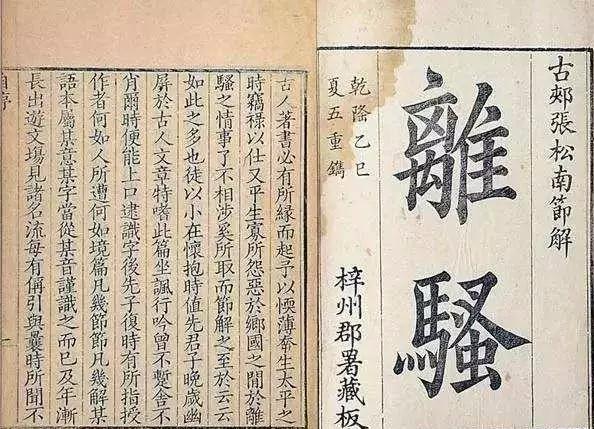 古郟張松南節解
離騷
梓州郡署藏板
乾隆乙巳
夏五重鐫
古人著書必有所緣而起予以愞薄幸生太平之
時竊祿以仕又平生寡所怨惡於鄉國之閒於離
騷之情事了不相涉奚所取而節解之至於云云
如此之多也徒以小在懷抱時值先君子晚歲幽
屏於古人文章特嗜此篇坐諷行吟曾不蹔舍不
肖爾時便能上口逮識字後先子復時有所指授
作者何如人所遭何如境篇凡幾節節凡幾解某
語本屬某意某字當從某音謹識之而已及年漸
長出遊文場見諸名流每有偁引與曩時所聞不